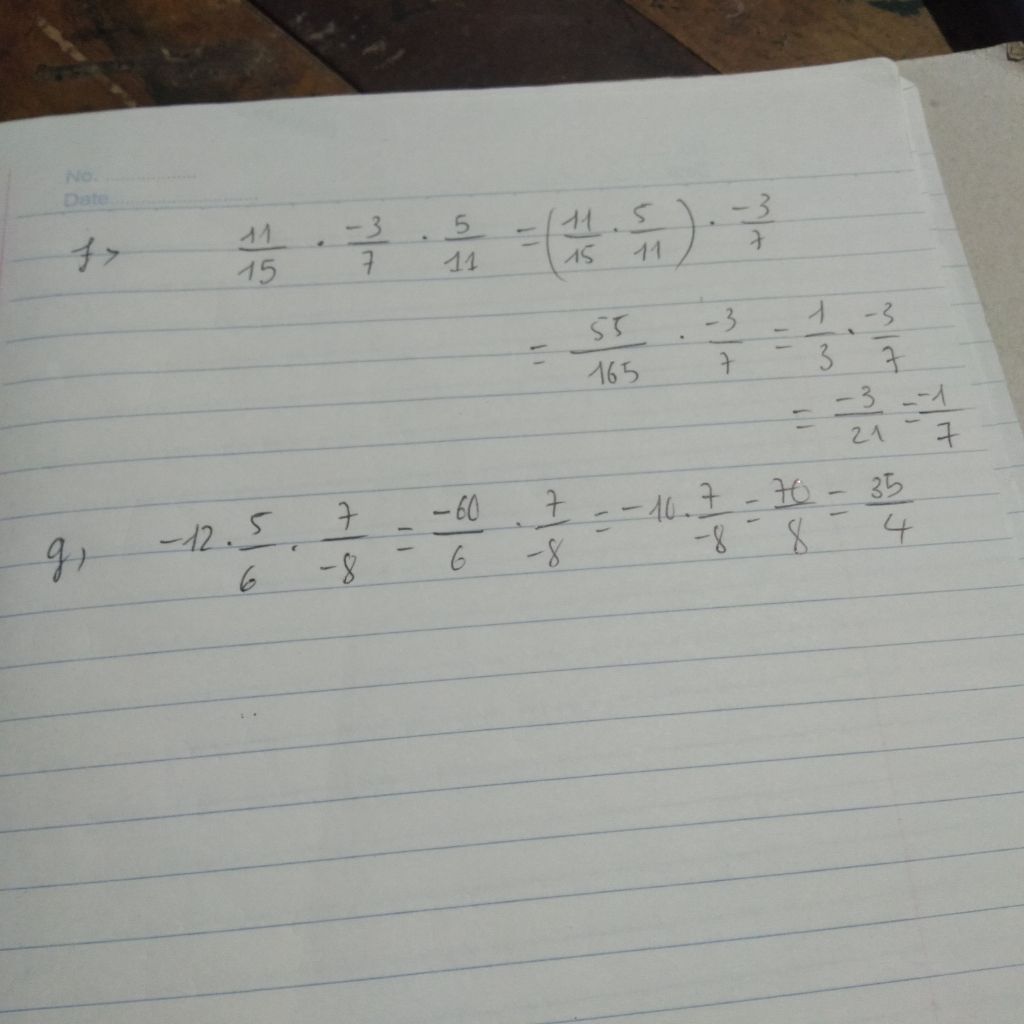 No. ....................
Date..............................
f> 11/15 . -3/7 . 5/11 = (11/15 . 5/11) . -3/7
= 55/165 . -3/7 = 1/3 . -3/7
= -3/21 = -1/7
g, -12 . 5/6 . 7/-8 = -60/6 . 7/-8 = -10 . 7/-8 = 70/8 = 35/4